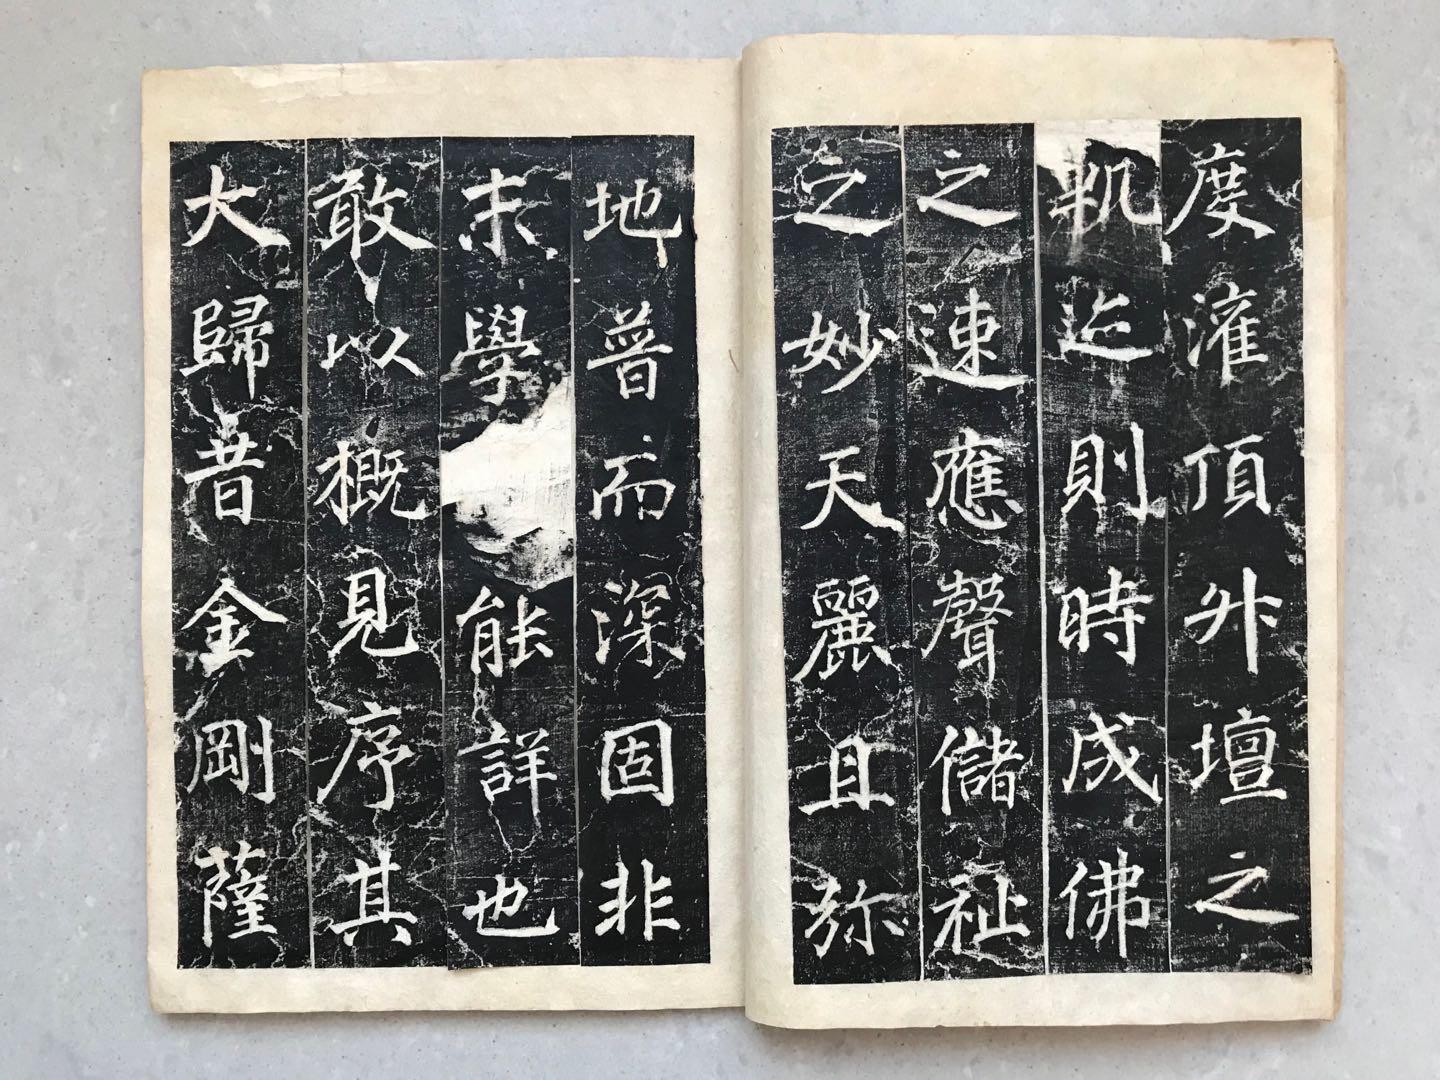 度灌頂升壇之
軌迹則時成佛
之速應聲儲祉
之妙天麗且弥
地普而深固非
末學能詳也
敢以概見序其
大歸昔金剛薩